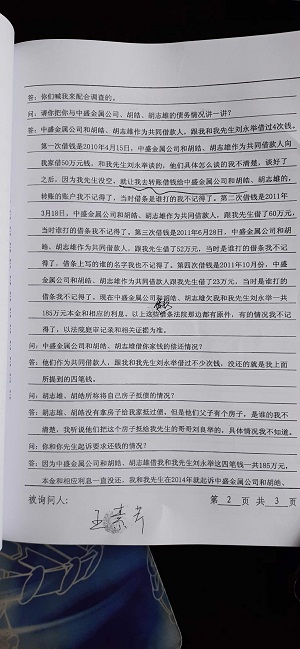 答：你们喊我来配合调查的。
问：请你把你与中盛金属公司、胡皓、胡志雄的债务情况讲一讲？
答：中盛金属公司和胡皓、胡志雄作为共同借款人，跟我和我先生刘永举借过4次钱，
第一次借钱是2010年4月15日，中盛金属公司和胡皓、胡志雄作为共同借款人向
我家借50万元钱，和我先生刘永举谈的，他们具体怎么谈的我不清楚，谈好了
之后，因为我先生没空，就让我去转账借钱给中盛金属公司和胡皓、胡志雄的，
转账的账户我不记得了，当时借条是谁打的我不记得了。第二次借钱是2011年
3月18日，中盛金属公司和胡皓、胡志雄作为共同借款人，跟我先生借了60万元，
当时谁打的借条我不记得了。第三次借钱是2011年6月28日，中盛金属公司和胡
皓、胡志雄作为共同借款人，跟我先生借了52万元，当时是谁打的借条我不记
得了，借条上写的谁的名字我也不记得了。第四次借钱是2011年10月份，中盛
金属公司和胡皓、胡志雄作为共同借款人跟我先生借了23万元，当时是谁打的
借条我不记得了。现在中盛金属公司和胡皓、胡志雄欠我和我先生刘永举一共
185万元本金和相应的利息。以上这些借条法院那边都有原件，有的情况我不记
得了，以法院庭审记录和相关证据为准。
问：中盛金属公司和胡皓、胡志雄借你家钱的偿还情况？
答：他们作为共同借款人，跟我和我先生刘永举借过不少次钱，没还的就是我上面
所提到的四笔钱。
问：胡志雄、胡皓所称将自己房子抵债的情况？
答：胡志雄、胡皓没有拿房子给我家抵过债，但是他们父子有个房子，是谁的我不
清楚，我听说他们把这个房子抵给我先生的哥哥刘良举的，具体情况我不知道。
问：你和你先生起诉要求还钱的情况？
答：因为中盛金属公司和胡皓、胡志雄借我和我先生刘永举这四笔钱一共185万元，
本金和相应利息一直没还，我和我先生在2014年就起诉中盛金属公司和胡皓、
被询问人： 第 2 页 共 3 页